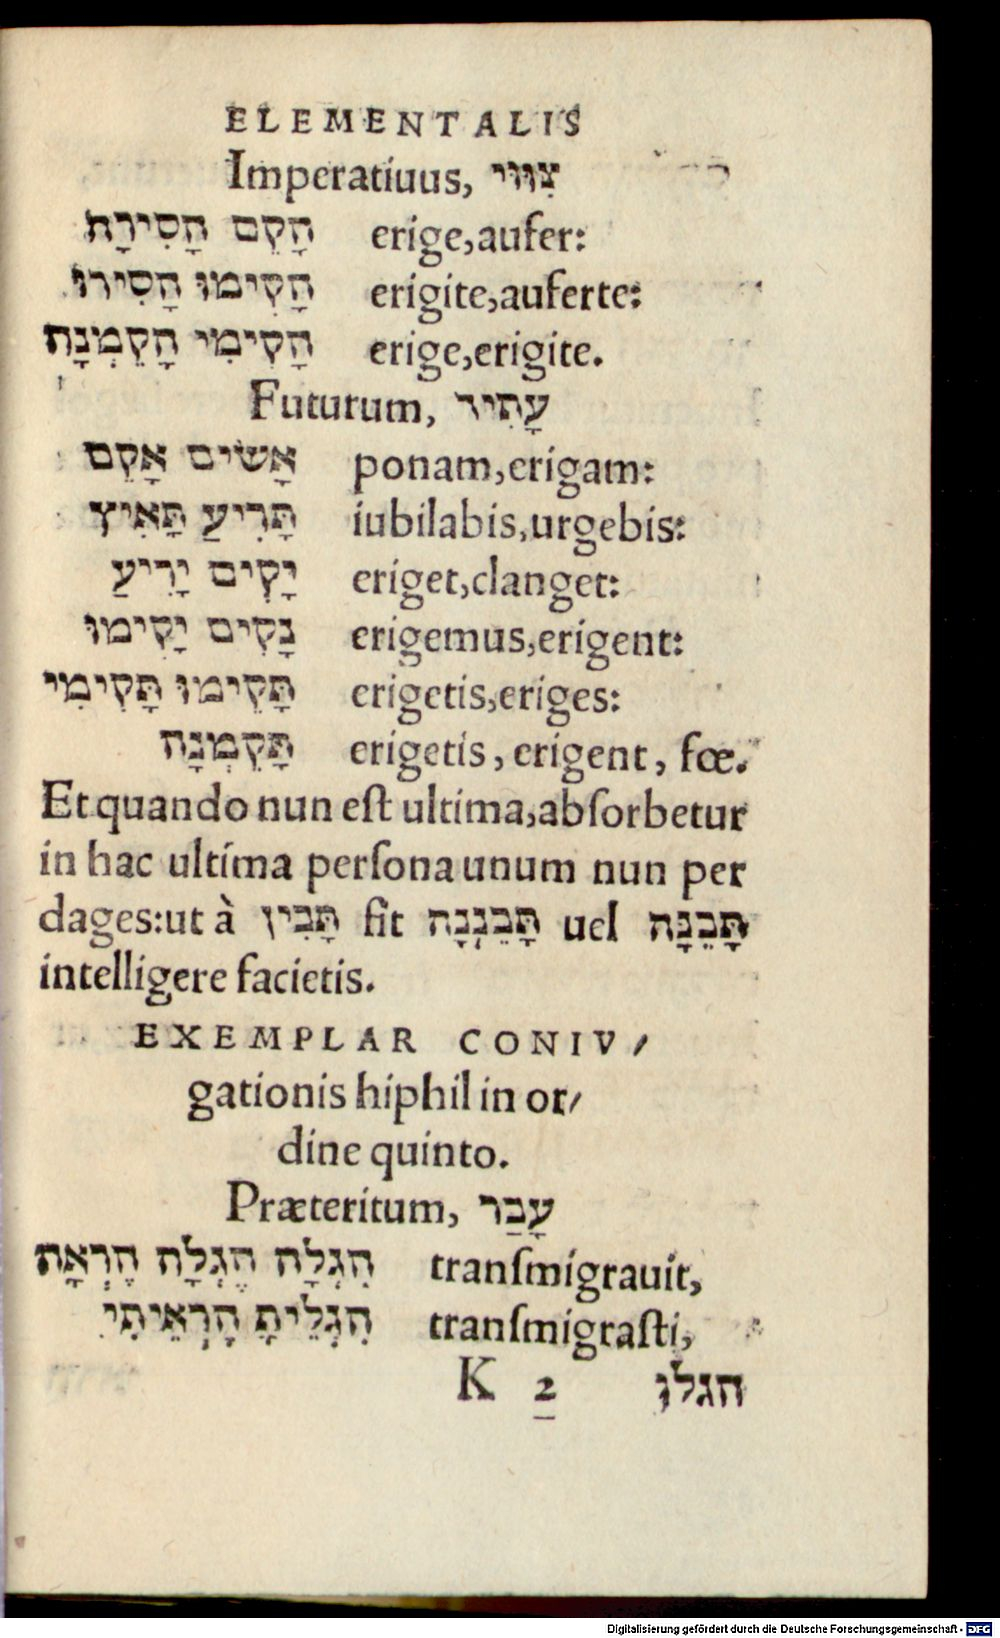 ELEMENTALIS
Imperatiuus, צִוּוּי
הָקֵם הָסִירָת erige,aufer:
הָקִימוּ הָסִירוּ erigite,auferte:
הָקִימִי הָקֵמְנָה erige,erigite.
Futurum, עָתִיר
אָשִׂים אָקֵם ponam,erigam:
תָּרִיעַ תָּאִיץ iubilabis,urgebis:
יָקִים יָרִיעַ eriget,clanget:
נָקִים יָקִימוּ erigemus,erigent:
תָּקִימוּ תָּקִימִי erigetis,eriges:
תָּקֵמְנָה erigetis, erigent, fœ.
Et quando nun est ultima,absorbetur
in hac ultima persona unum nun per
dages:ut à תָּבִין fit תָּבֵנְנָה uel תָּבֵנָּה
intelligere facietis.
EXEMPLAR CONIV/
gationis hiphil in or/
dine quinto.
Præteritum, עָבַר
הִגְלָה הֶגְלָה הֶרְאָה transmigrauit,
הִגְלֵיתָ הָרְאֵיתִי transmigrasti,
K 2 הגלו
Digitalisierung gefördert durch die Deutsche Forschungsgemeinschaft - DFG